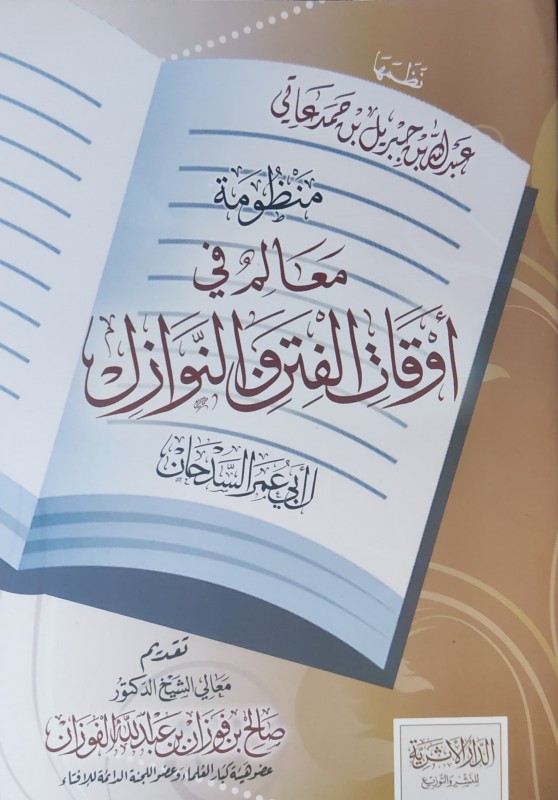 نظمها
عبد الله بن جبريل بن حمد عاتي
مَنْظُومَة
مَعَالِمُ في
أَوْقَاتِ الفِتَنِ وَالنَّوَازِلِ
لأبي عُمَر السَّدحَان
تقديم
معالي الشيخ الدكتور
صالح بن فوزان بن عبد الله الفوزان
عضو هيئة كبار العلماء وعضو اللجنة الدائمة للإفتاء
الدار الأثرية
للنشر والتوزيع